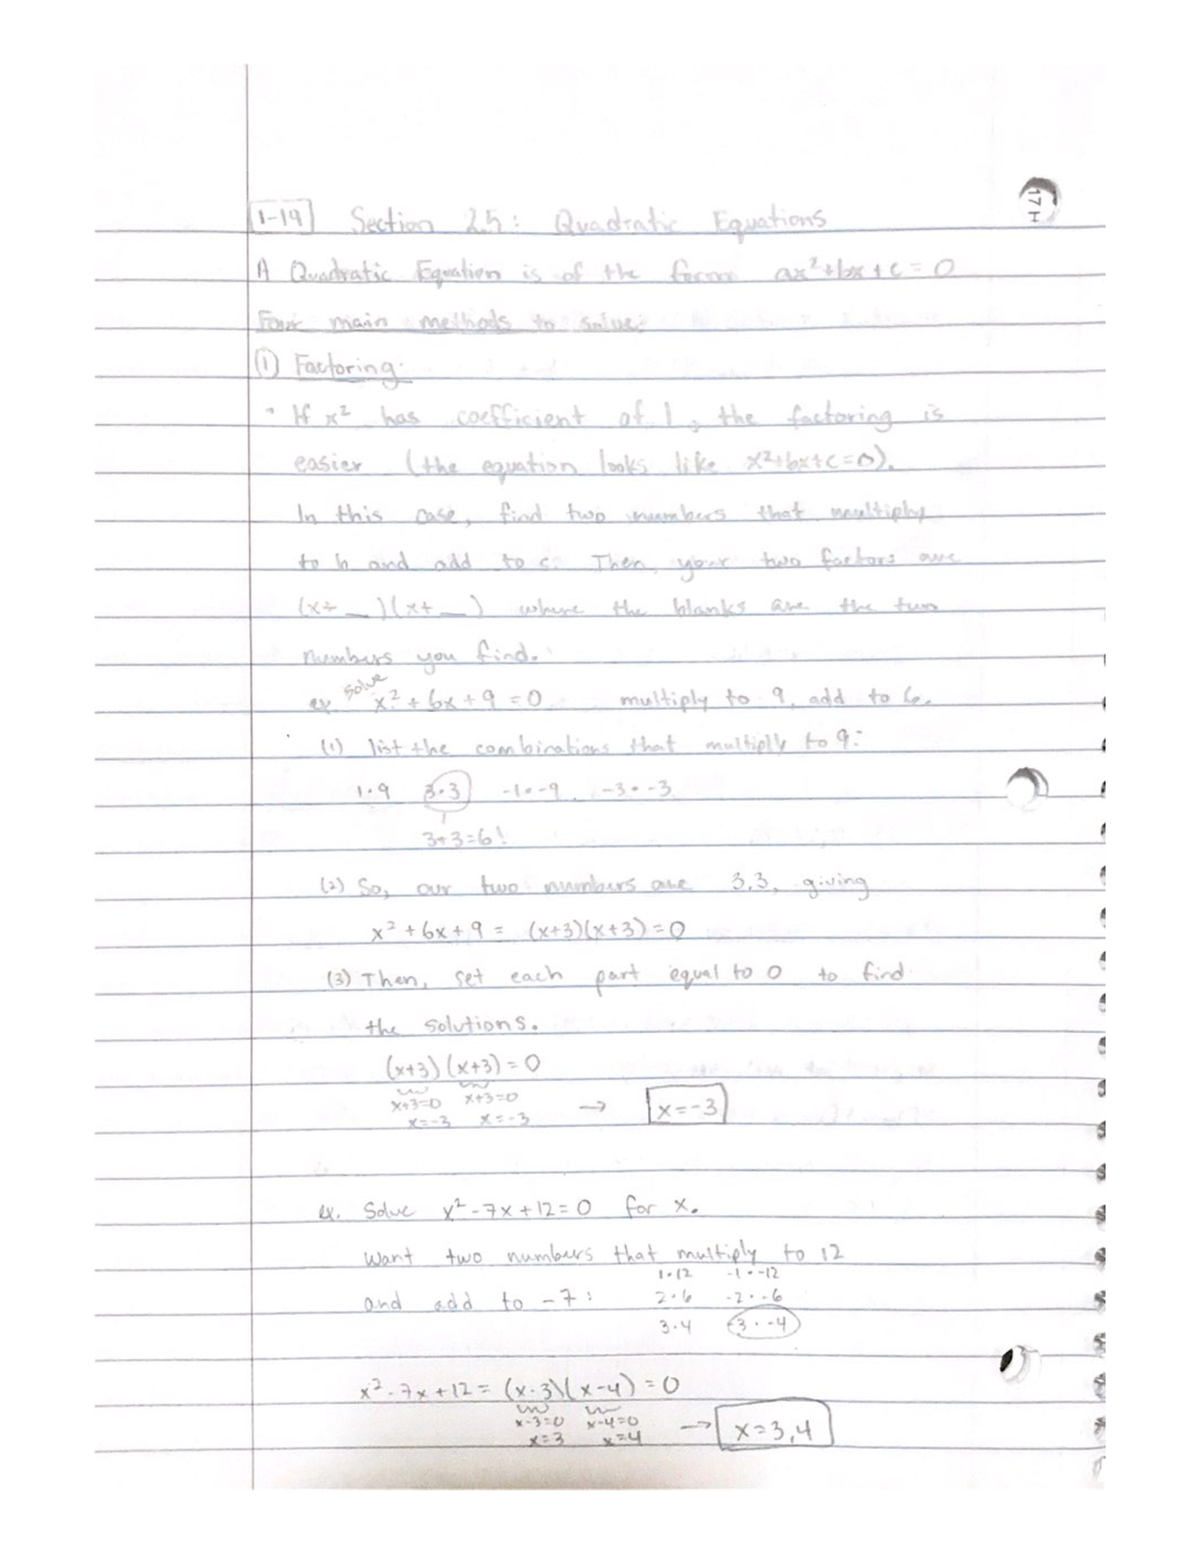 17 H
1-19 Section 2.5: Quadratic Equations
A Quadratic Equation is of the form ax²+bx+c=0
Four main methods to solve:
① Factoring:
• If x² has coefficient of 1, the factoring is
easier (the equation looks like x²+bx+c=0).
In this case, find two numbers that multiply
to b and add to c. Then, your two factors are
(x+ _)(x+ _) where the blanks are the two
numbers you find.
ex. Solve x²+6x+9=0 multiply to 9, add to 6.
(1) list the combinations that multiply to 9:
1·9 3·3 -1·-9 -3·-3
3+3=6!
(2) So, our two numbers are 3,3, giving
x²+6x+9 = (x+3)(x+3)=0
(3) Then, set each part equal to 0 to find
the solutions.
(x+3)(x+3)=0
x+3=0 x+3=0
x=-3 x=-3 → x=-3
ex. Solve x²-7x+12=0 for x.
Want two numbers that multiply to 12
1·12 -1·-12
and add to -7: 2·6 -2·-6
3·4 -3·-4
x²-7x+12 = (x-3)(x-4)=0
x-3=0 x-4=0
x=3 x=4 → x=3,4